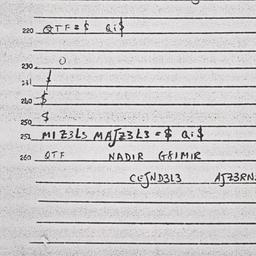 220 QTF=$ Qi$
230 0
231 $
240 $
$
250
251 MIZ3L3 MAJZ3L3=$ Qi$
260 QTF NADIR G8IMIR
CEJND3L3 AJZ3RN